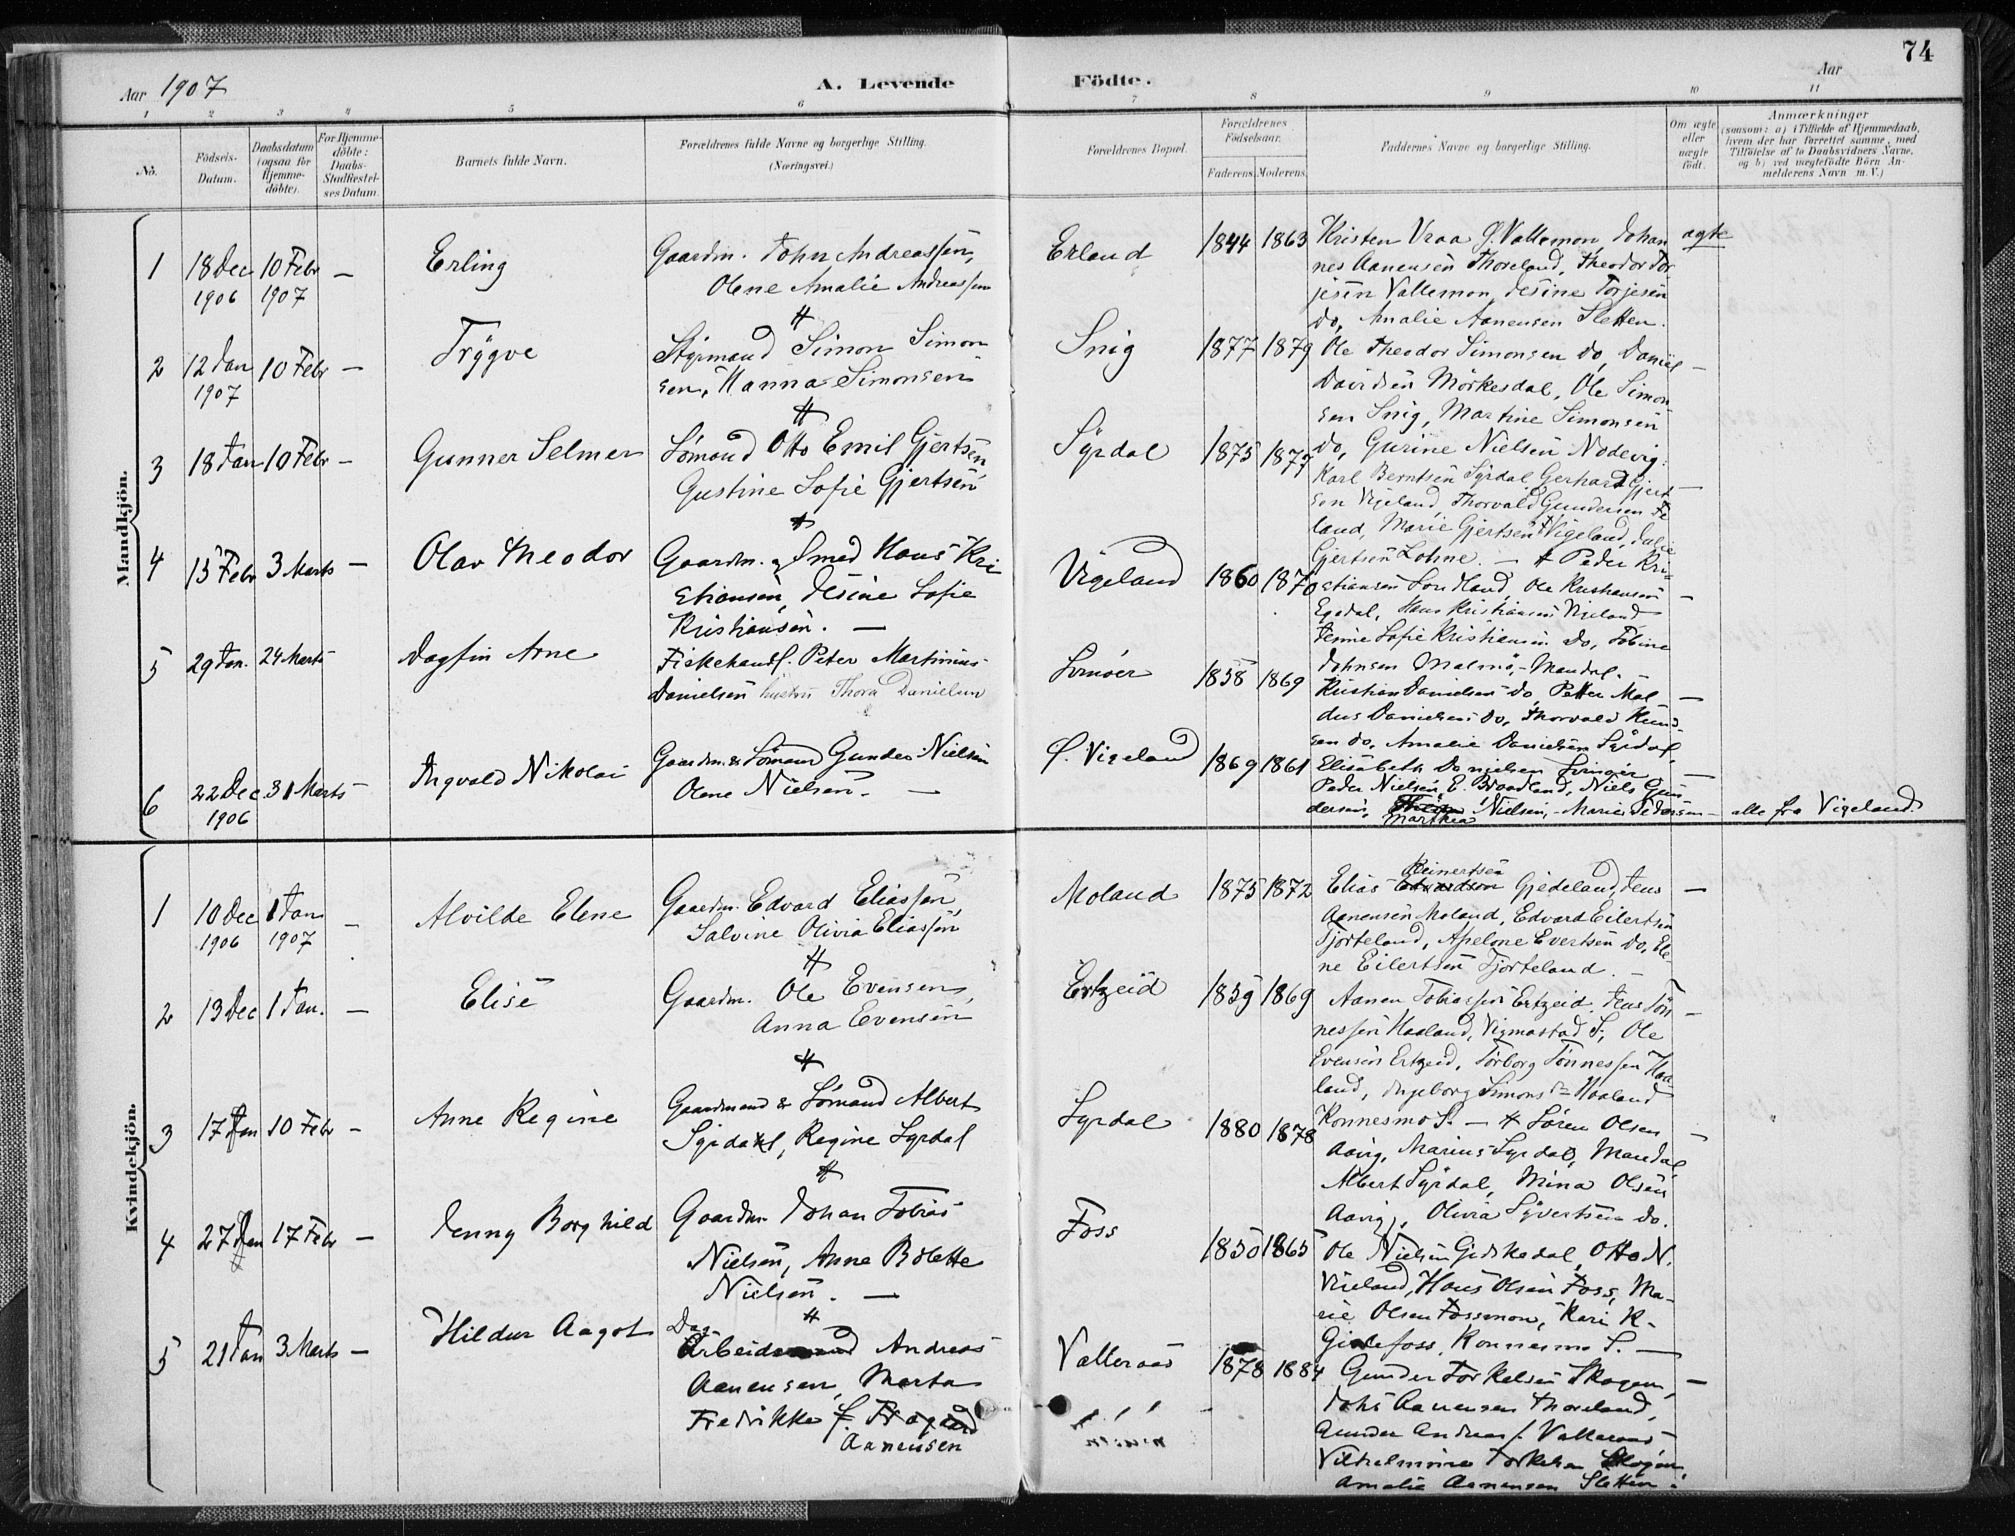 74
Aar 1907
A. Levende Födte.
Aar
1 2 3 4 5 6 7 8 9 10 11
No.
Födsels-
Datum.
Daabsdatum
(ogsaa for
Hjemme-
döbte).
For Hjemme-
döbte:
Daabs-
Stadfæstel-
ses Datum.
Barnets fulde Navn.
Forældrenes fulde Navne og borgerlige Stilling.
(Næringsvei.)
Forældrenes Bopæl.
Forældrenes
Födselsaar.
Faderens. Moderens.
Faddernes Navne og borgerlige Stilling.
Om ægte
eller
uægte
födt.
Anmærkninger
(saasom: a) i Tilfælde af Hjemmedaab,
hvem der har forrettet samme, med
Tilföielse af to Daabsvidners Navne.
og b) ved uægtefödte Börn An-
melderens Navn m. V.)
Mandkjön.
1 18 Dec 10 Febr —
1906 1907
Erling
Gaardm. John Andreassen,
Olene Amalie Andreassen
Erland
1844 1863
Kristen Vraa g. Vallemon Johan
nes Aanensen Thoreland, Theodor Tor
jesen Vallemon, Jesine Torjesen
do, Amalie Aanensen Sletten.
ægte
2 12 Jan 10 Febr —
1907
Trygve
Styrmand Simon Simon
sen, Hanna Simonsen
Snig
1877 1879
Ole Theodor Simonsen do, Daniel
Davidsen Mörkesdal, Ole Simon-
sen Snig, Martine Simonsen
do, Gurine Nielsen Nodevig.
—
3 18 Jan 10 Febr —
Gunner Selmer
Sömand Otto Emil Gjertsen
Gustine Sofie Gjertsen
Syrdal
1875 1877
Karl Berntsen Syrdal, Gerhard Gjert
sen Vigeland, Thorvald Gundersen
land, Marie Gjertsen Vigeland, Julie
Gjertsen Lohne. —
—
4 15 Febr 3 Marts —
Olav Theodor
Gaardm. & Smed Hans Kri
stiansen, Jesine Sofie
Kristiansen. —
Vigeland
1860 1870
Peder Kri-
stiansen Sordland, Ole Kristiansen
Egedal, Hans Kristiansen Vigeland
Jennie Sofie Kristiansen do, Tobine
Johnsen Malmö, Mandal. —
—
5 29 Jan. 24 Marts
Dagfin Arne
Fiskehandl. Peter Martinius
Danielsen hustru Thora Danielsen
Svinöer
1858 1869
Kristian Danielsen do, Petter Mal
dus Danielsen do, Thorvald Knud
sen do, Amalie Danielsen Syrdal,
Elisabeth Danielsen Svinöer
—
6 22 Dec 31 Marts
1906
Ingvald Nikolai
Gaardm. & Sömand Gunder Nielsen
Olene Nielsen. —
Ö. Vigeland
1869 1861
Peder Nielsen, E. Broadland, Niels Gun
dersen, Marthea Nielsen, Marie Pedersen
— alle fra Vigeland.
Kvindekjön.
1 10 Dec 1 Jan —
1906 1907
Alvilde Elene
Gaardm. Edvard Eliassen,
Salvine Olivia Eliassen
Moland
1875 1872
Reinertsen
Elias Edvardsen Gjedeland, Jens
Aanensen Moland, Edvard Eilertsen
Fjorteland, Apelone Evertsen do, Ele-
ne Eilertsen Fjorteland. —
—
2 13 Dec 1 Jan. —
Elise
Gaardm. Ole Evensen,
Anna Evensen
Ertzeid
1859 1869
Aanen Tobiassen Ertzeid, Jens Tön
nessen Haaland, Vigmostad S., Ole
Evensen Ertzeid, Torborg Tönnessen Haa-
land, Ingeborg Simons Haaland
Konnesmo S. —
—
3 17 Jan 10 Febr —
Anne Regine
Gaardmand & Sömand Albert
Syrdahl, Regine Syrdal
Syrdal
1880 1878
Sören Olsen
Aavig, Marius Syrdal, Mandal,
Albert Syrdal, Mina Olsen
Aavig, Olivia Syvertsen do.
—
4 27 Jan 17 Febr —
Jenny Borghild
Gaardm. Johan Tobias
Nielsen, Anne Bolette
Nielsen. —
Foss
1850 1865
Ole Nielsen Gidskedal, Otto N.
Vigeland, Hans Olsen Foss, Ma-
rie Olsen Fossmon, Kari K-
Gislefoss, Konnesmo S. —
5 21 Jan 3 Marts —
Hildur Aagot
Dag
Arbeidsmand Andreas
Aanensen, Marta
Fredrikke f.
Aanensen
Valleraas
1878 1884
Gunder Torkelsen Skogen,
Johs Aanensen Thoreland,
Gunder Andreas s. Valleraas
Vilhelmine Torkelsen Skogen,
Amalie Aanensen Sletten.
—